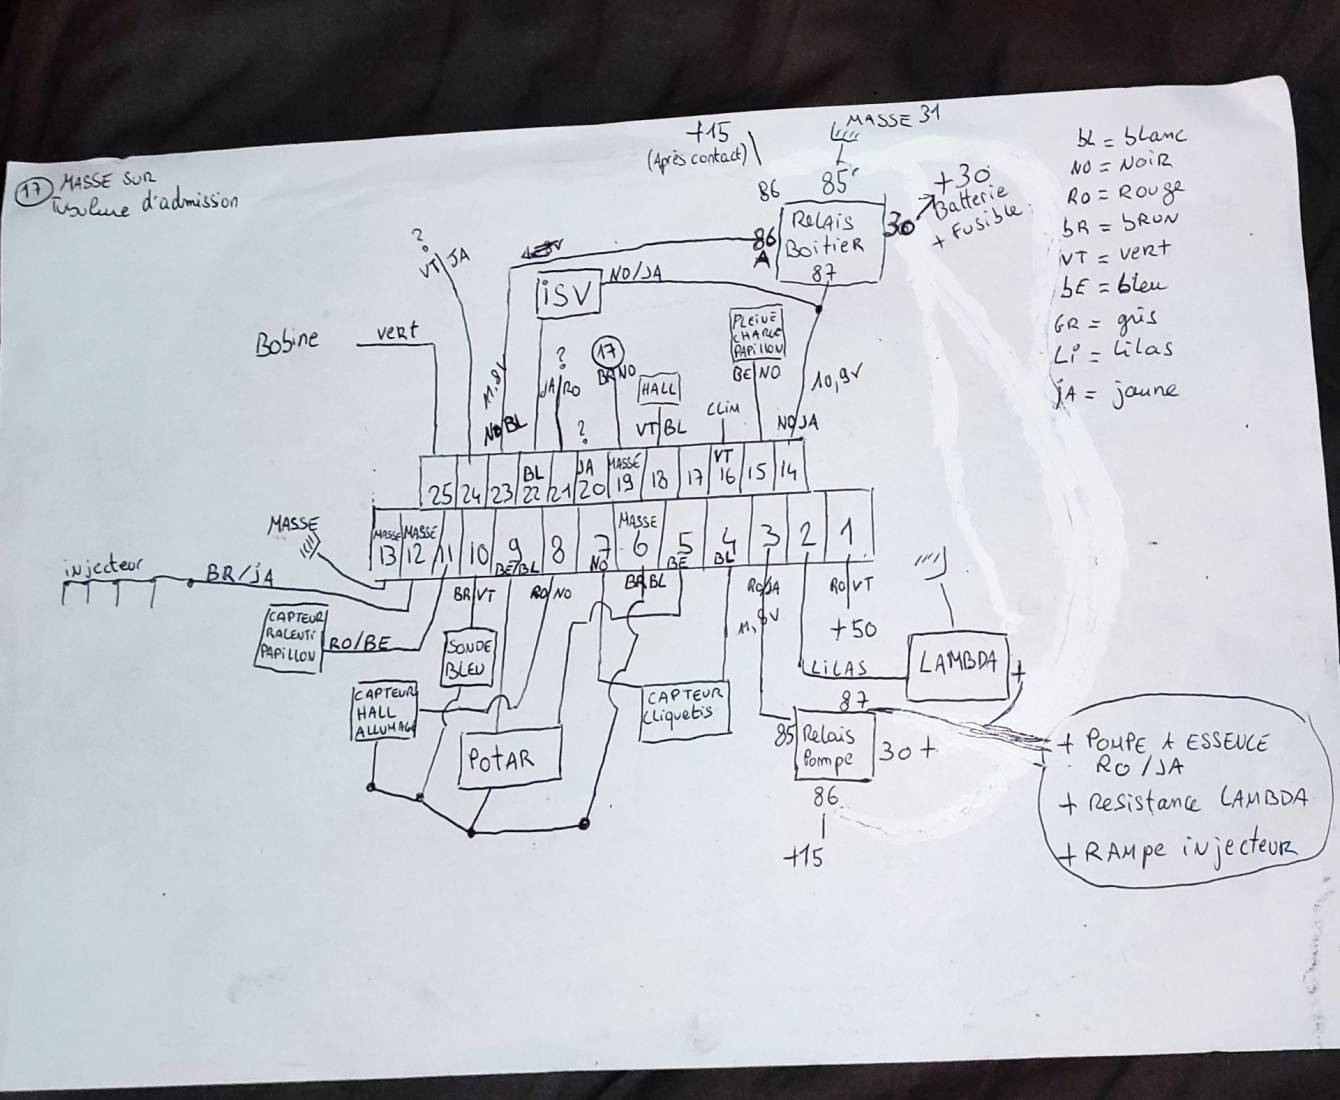 17 MASSE SUR
Tubulure d'admission
+15
(Après contact)
MASSE 31
86
85
RELAIS
BOITIER
87
86
A
30
+30
Batterie
+ FUSIBLE
bL = blanc
NO = NOIR
RO = ROUGE
bR = bRUN
VT = vert
bE = bleu
GR = gris
Li = Lilas
jA = jaune
?
VT/JA
Bobine
vert
iSV
NO/JA
11.8V
NO/BL
?
JA/RO
?
17
BR/NO
HALL
VT/BL
CLIM
PLEINE
CHARGE
PAPILLON
BE/NO
10,9V
NO/JA
25 24 23 BL 22 21 JA 20 MASSE 19 18 17 VT 16 15 14
MASSE 13 MASSE 12 11 10 9 BE/BL 8 7 NO MASSE 6 5 BE 4 BL 3 2 1
MASSE
injecteur
BR/JA
CAPTEUR
RALENTI
PAPILLON
RO/BE
BR/VT
SONDE
BLEU
RO/NO
BR/BL
RO/JA
11,8V
RO/VT
+50
LILAS
LAMBDA
+
CAPTEUR
HALL
ALLUMAGE
POTAR
CAPTEUR
cliquetis
87
85
Relais
Pompe
30 +
86
+15
+ POMPE A ESSENCE
RO/JA
+ Resistance LAMBDA
+ RAMPE INJECTEUR